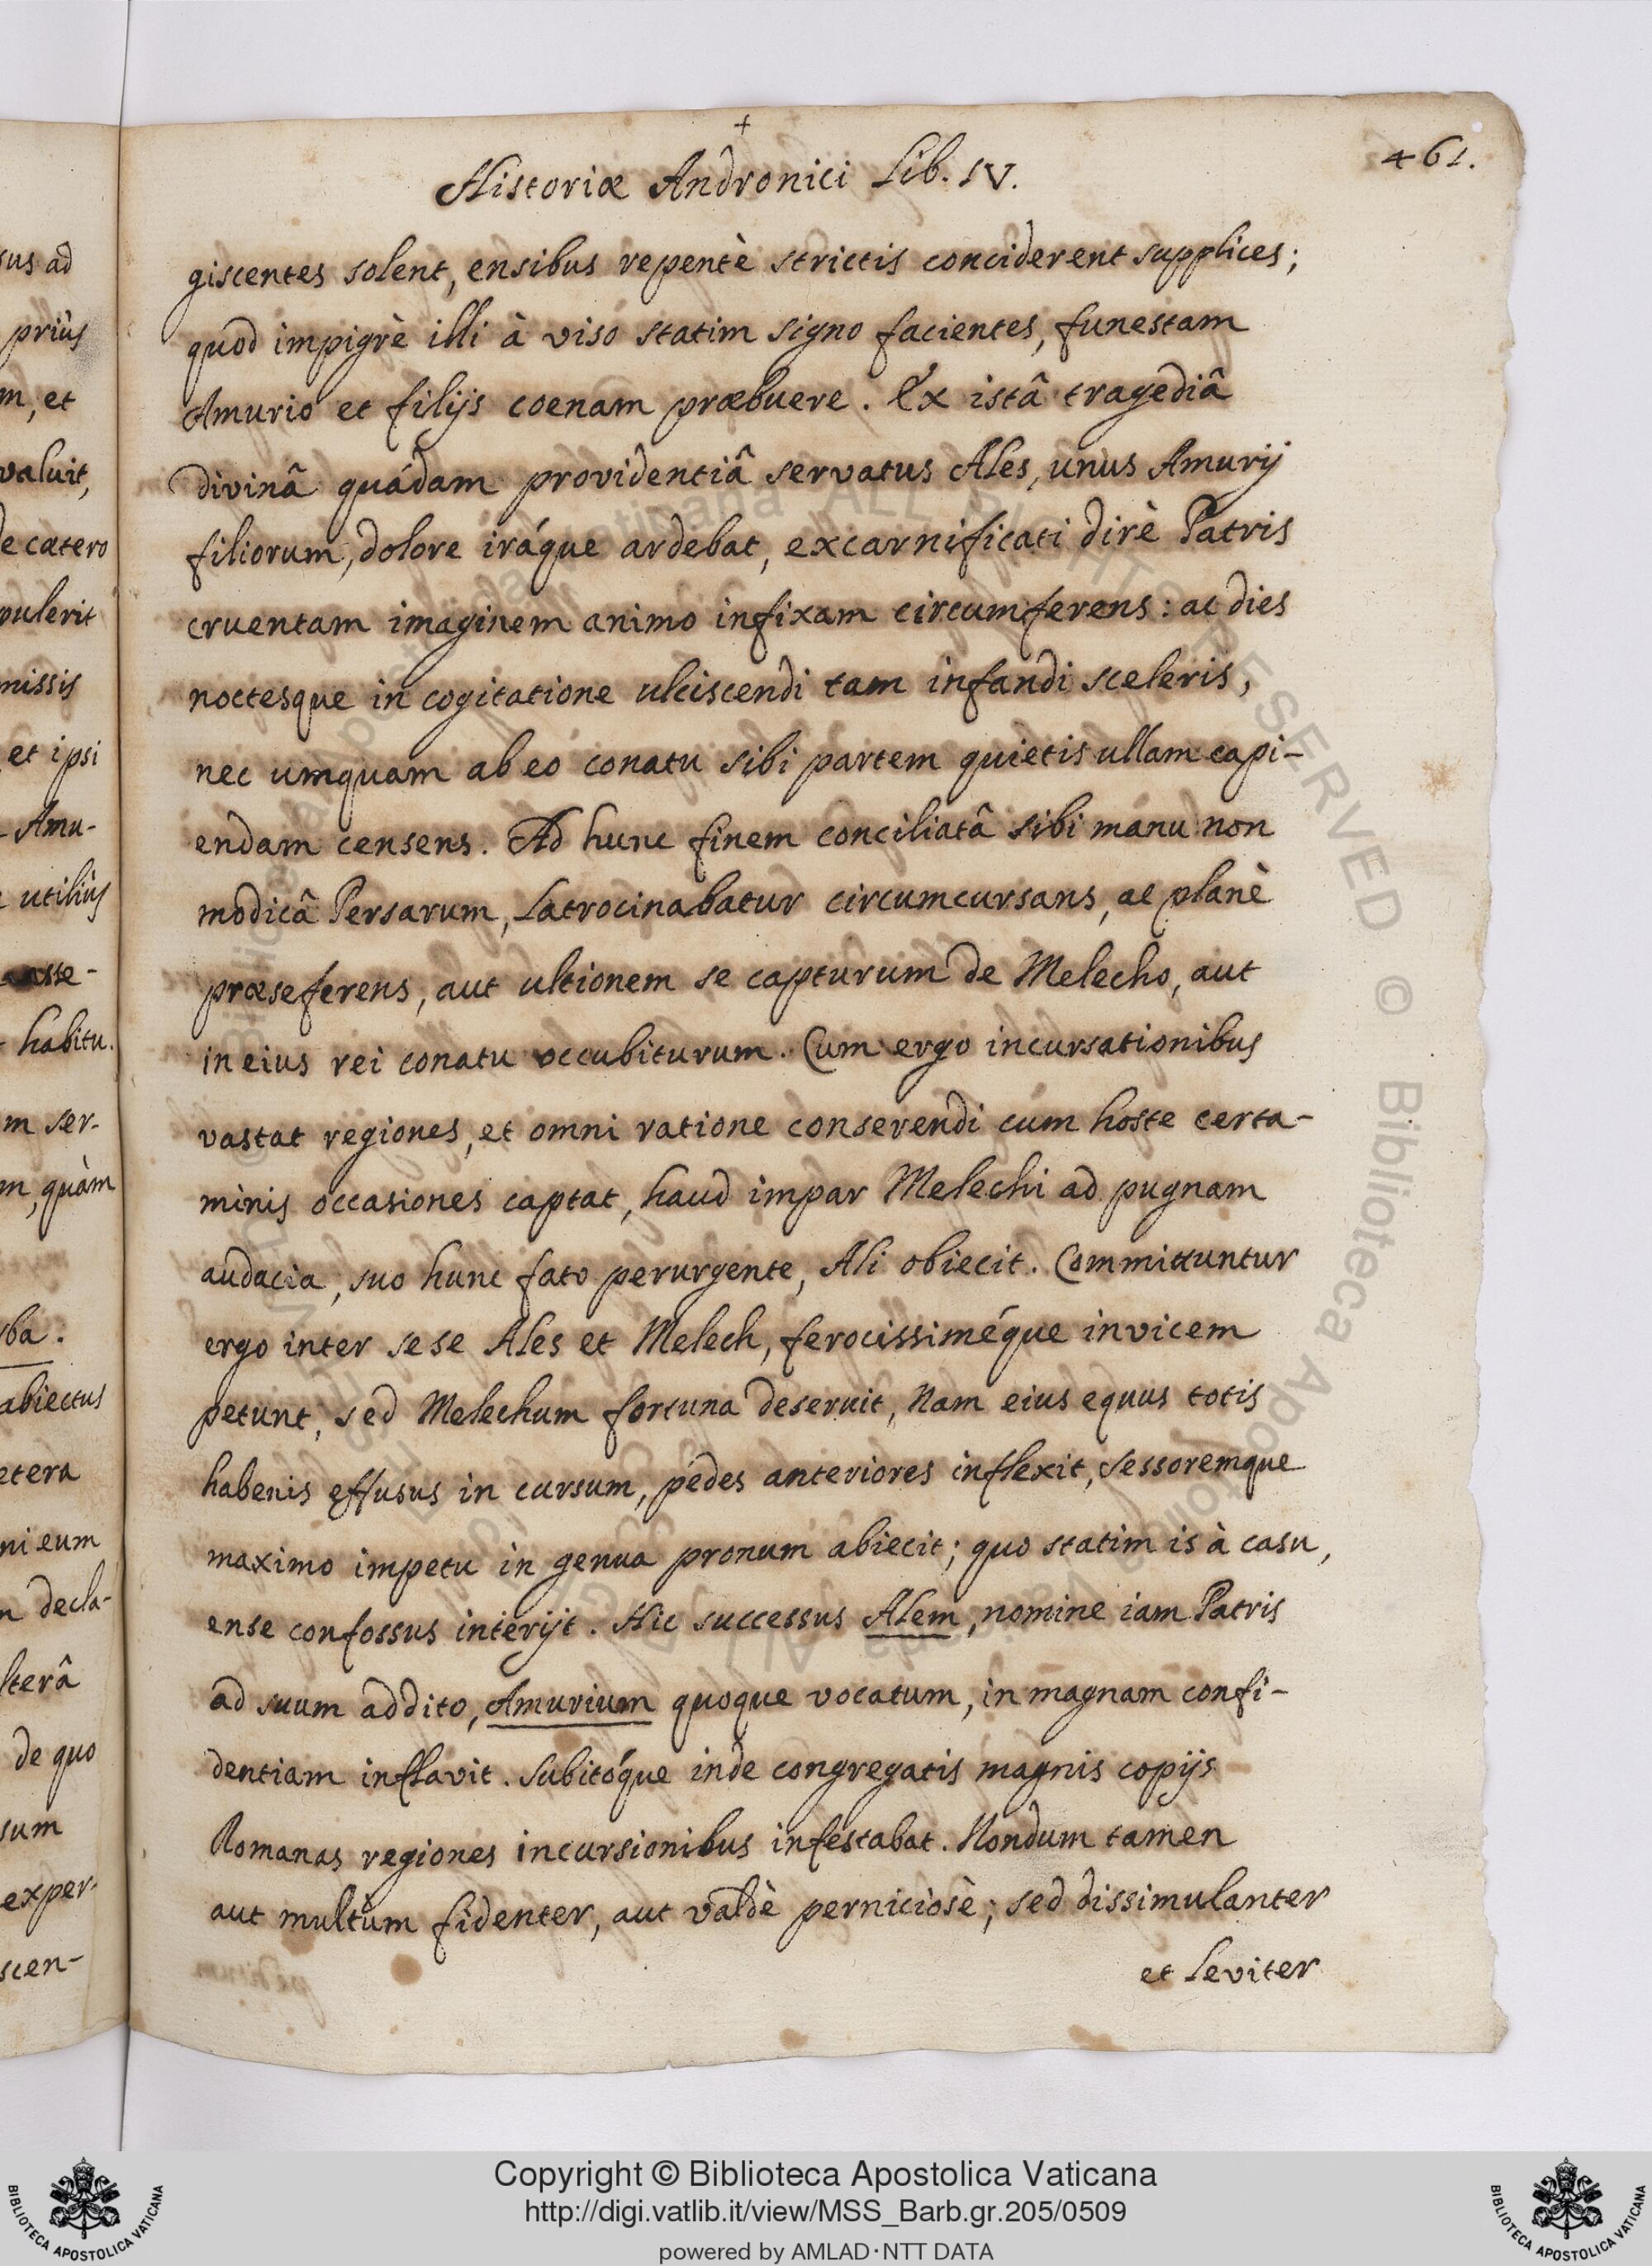 +
Historiæ Andronici Lib. IV.
461.
giscentes solent, ensibus repentè strictis conciderent supplices;
quod impigrè illi à viso statim signo facientes, funestam
Amurio et filijs coenam præbuere. Ex istâ tragediâ
divinâ quádam providentiâ servatus Ales, unus Amurij
filiorum, dolore iráque ardebat, excarnificati dirè Patris
cruentam imaginem animo infixam circumferens: ac dies
noctesque in cogitatione ulciscendi tam infandi sceleris,
nec umquam ab eo conatu sibi partem quietis ullam capi-
endam censens. Ad hunc finem conciliatâ sibi manu non
modicâ Persarum, Latrocinabatur circumcursans, ac planè
præseferens, aut ultionem se capturum de Melecho, aut
in eius rei conatu occubiturum. Cum ergo incursationibus
vastat regiones, et omni ratione conserendi cum hoste certa-
minis occasiones captat, haud impar Melechi ad pugnam
audacia, suo hunc fato perurgente, Ali obiecit. Committuntur
ergo inter sese Ales et Melech, ferocissiméque invicem
petunt, sed Melechum fortuna deseruit, Nam eius equus totis
habenis effusus in cursum, pedes anteriores inflexit, sessoremque
maximo impetu in genua pronum abiecit; quo statim is à casu,
ense confossus interijt. Hic successus Alem, nomine iam Patris
ad suum addito, Amurium quoque vocatum, in magnam confi-
dentiam inflavit. Subitóque inde congregatis magnis copijs
Romanas regiones incursionibus infestabat. Nondum tamen
aut multùm fidenter, aut valdè perniciosè; sed dissimulanter
et leviter
sus ad
priùs
m, et
valuit,
de cætero
pulerit
missis
et ipsi
Amu-
utiliùs
asse-
habitu.
m ser-
m, quàm
ba.
abiectus
etera
ni eum
n decla-
lterâ
de quo
sum
exper-
scen-
Copyright © Biblioteca Apostolica Vaticana
http://digi.vatlib.it/view/MSS_Barb.gr.205/0509
powered by AMLAD·NTT DATA
BIBLIOTECA APOSTOLICA VATICANA
BIBLIOTECA APOSTOLICA VATICANA